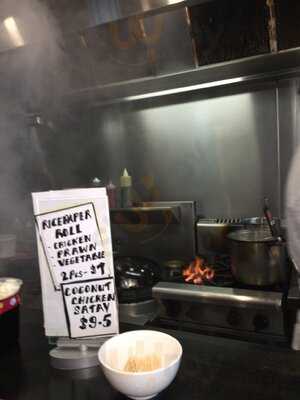 RICEPAPER
ROLL
- CHICKEN
- PRAWN
- VEGETABLE
2 Pcs - $9
COCONUT
CHICKEN
SATAY
$9.5